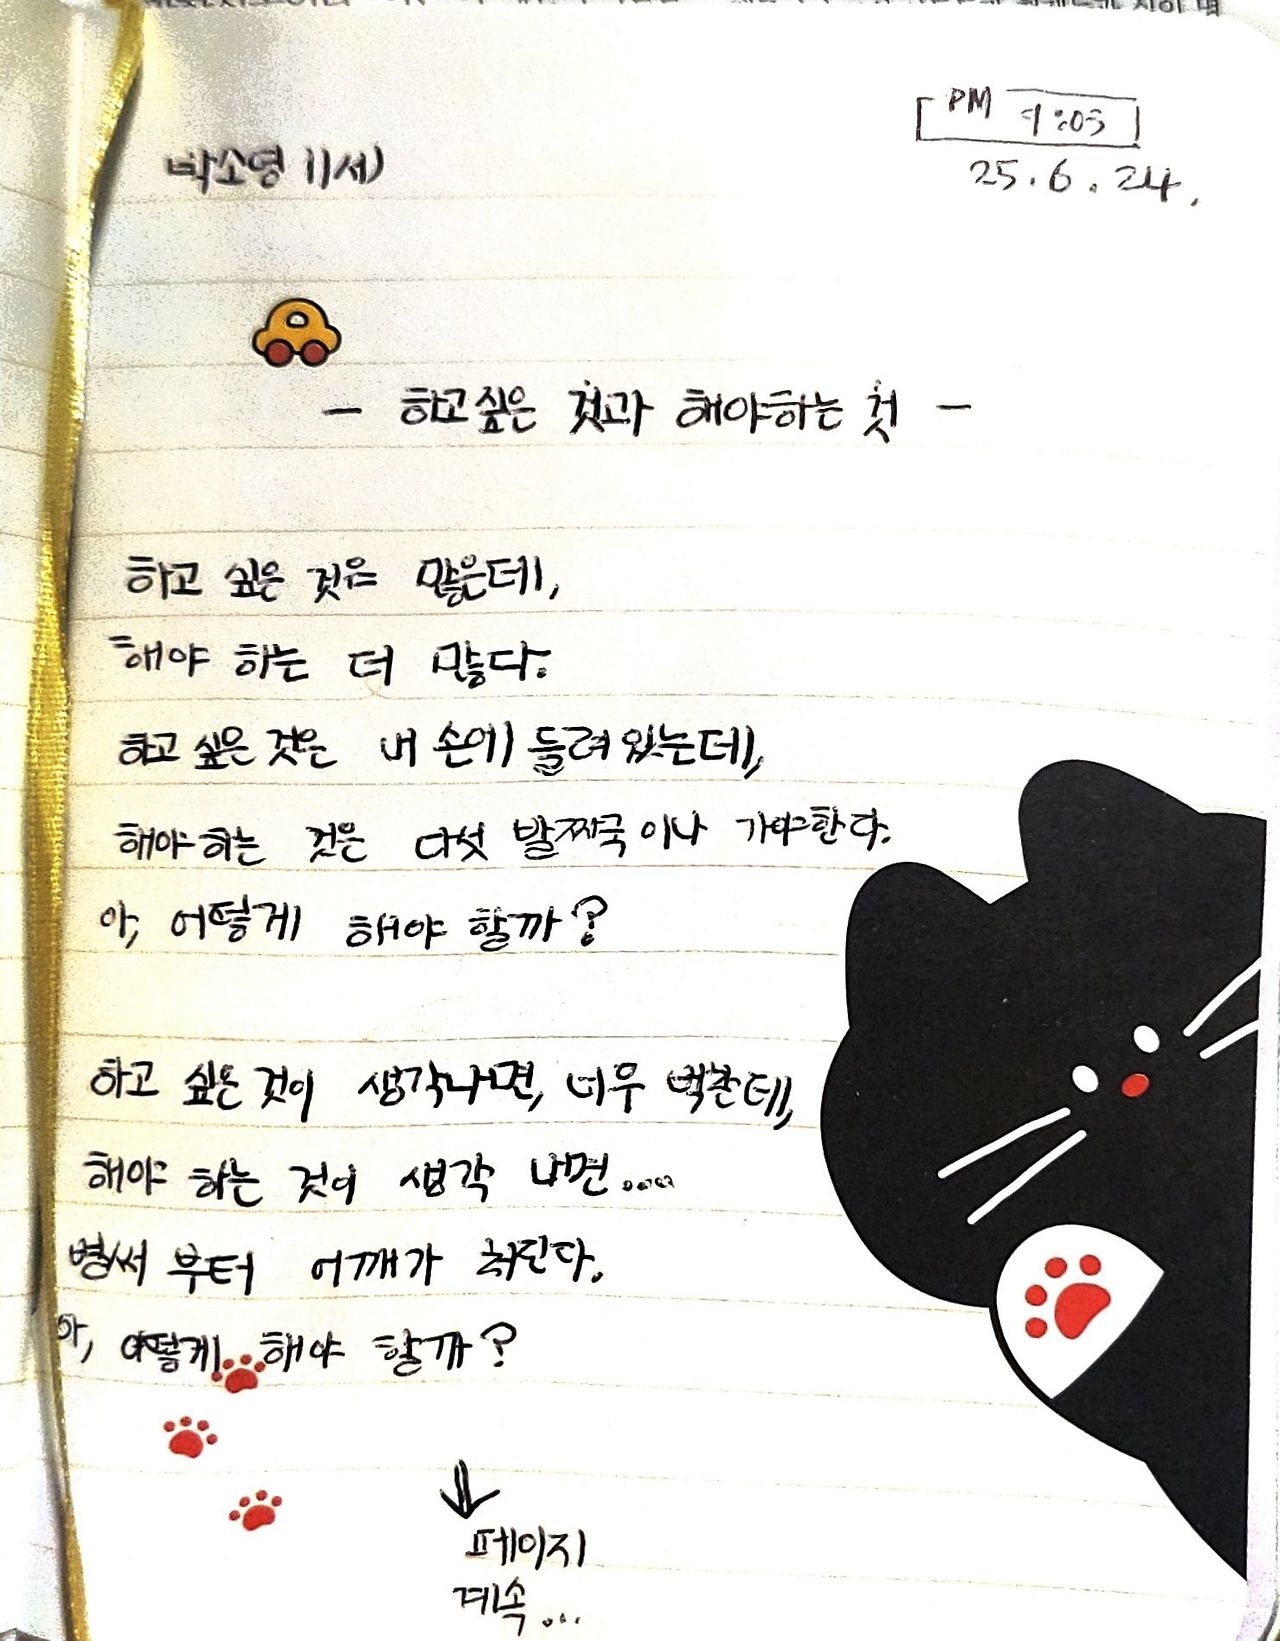 박소영 11세)
PM 9:03
25.6.24.
- 하고싶은 것과 해야하는 것 -
하고 싶은 것은 많은데,
해야 하는 더 많다.
하고 싶은 것은 내 손에 들려있는데,
해야하는 것은 다섯 발짜국이나 가야한다.
아, 어떻게 해야 할까?
하고 싶은 것이 생각나면, 너무 벅찬데,
해야 하는 것이 생각 나면....
병써 부터 어깨가 처진다.
아, 어떻게 해야 할까?
페이지
계속...